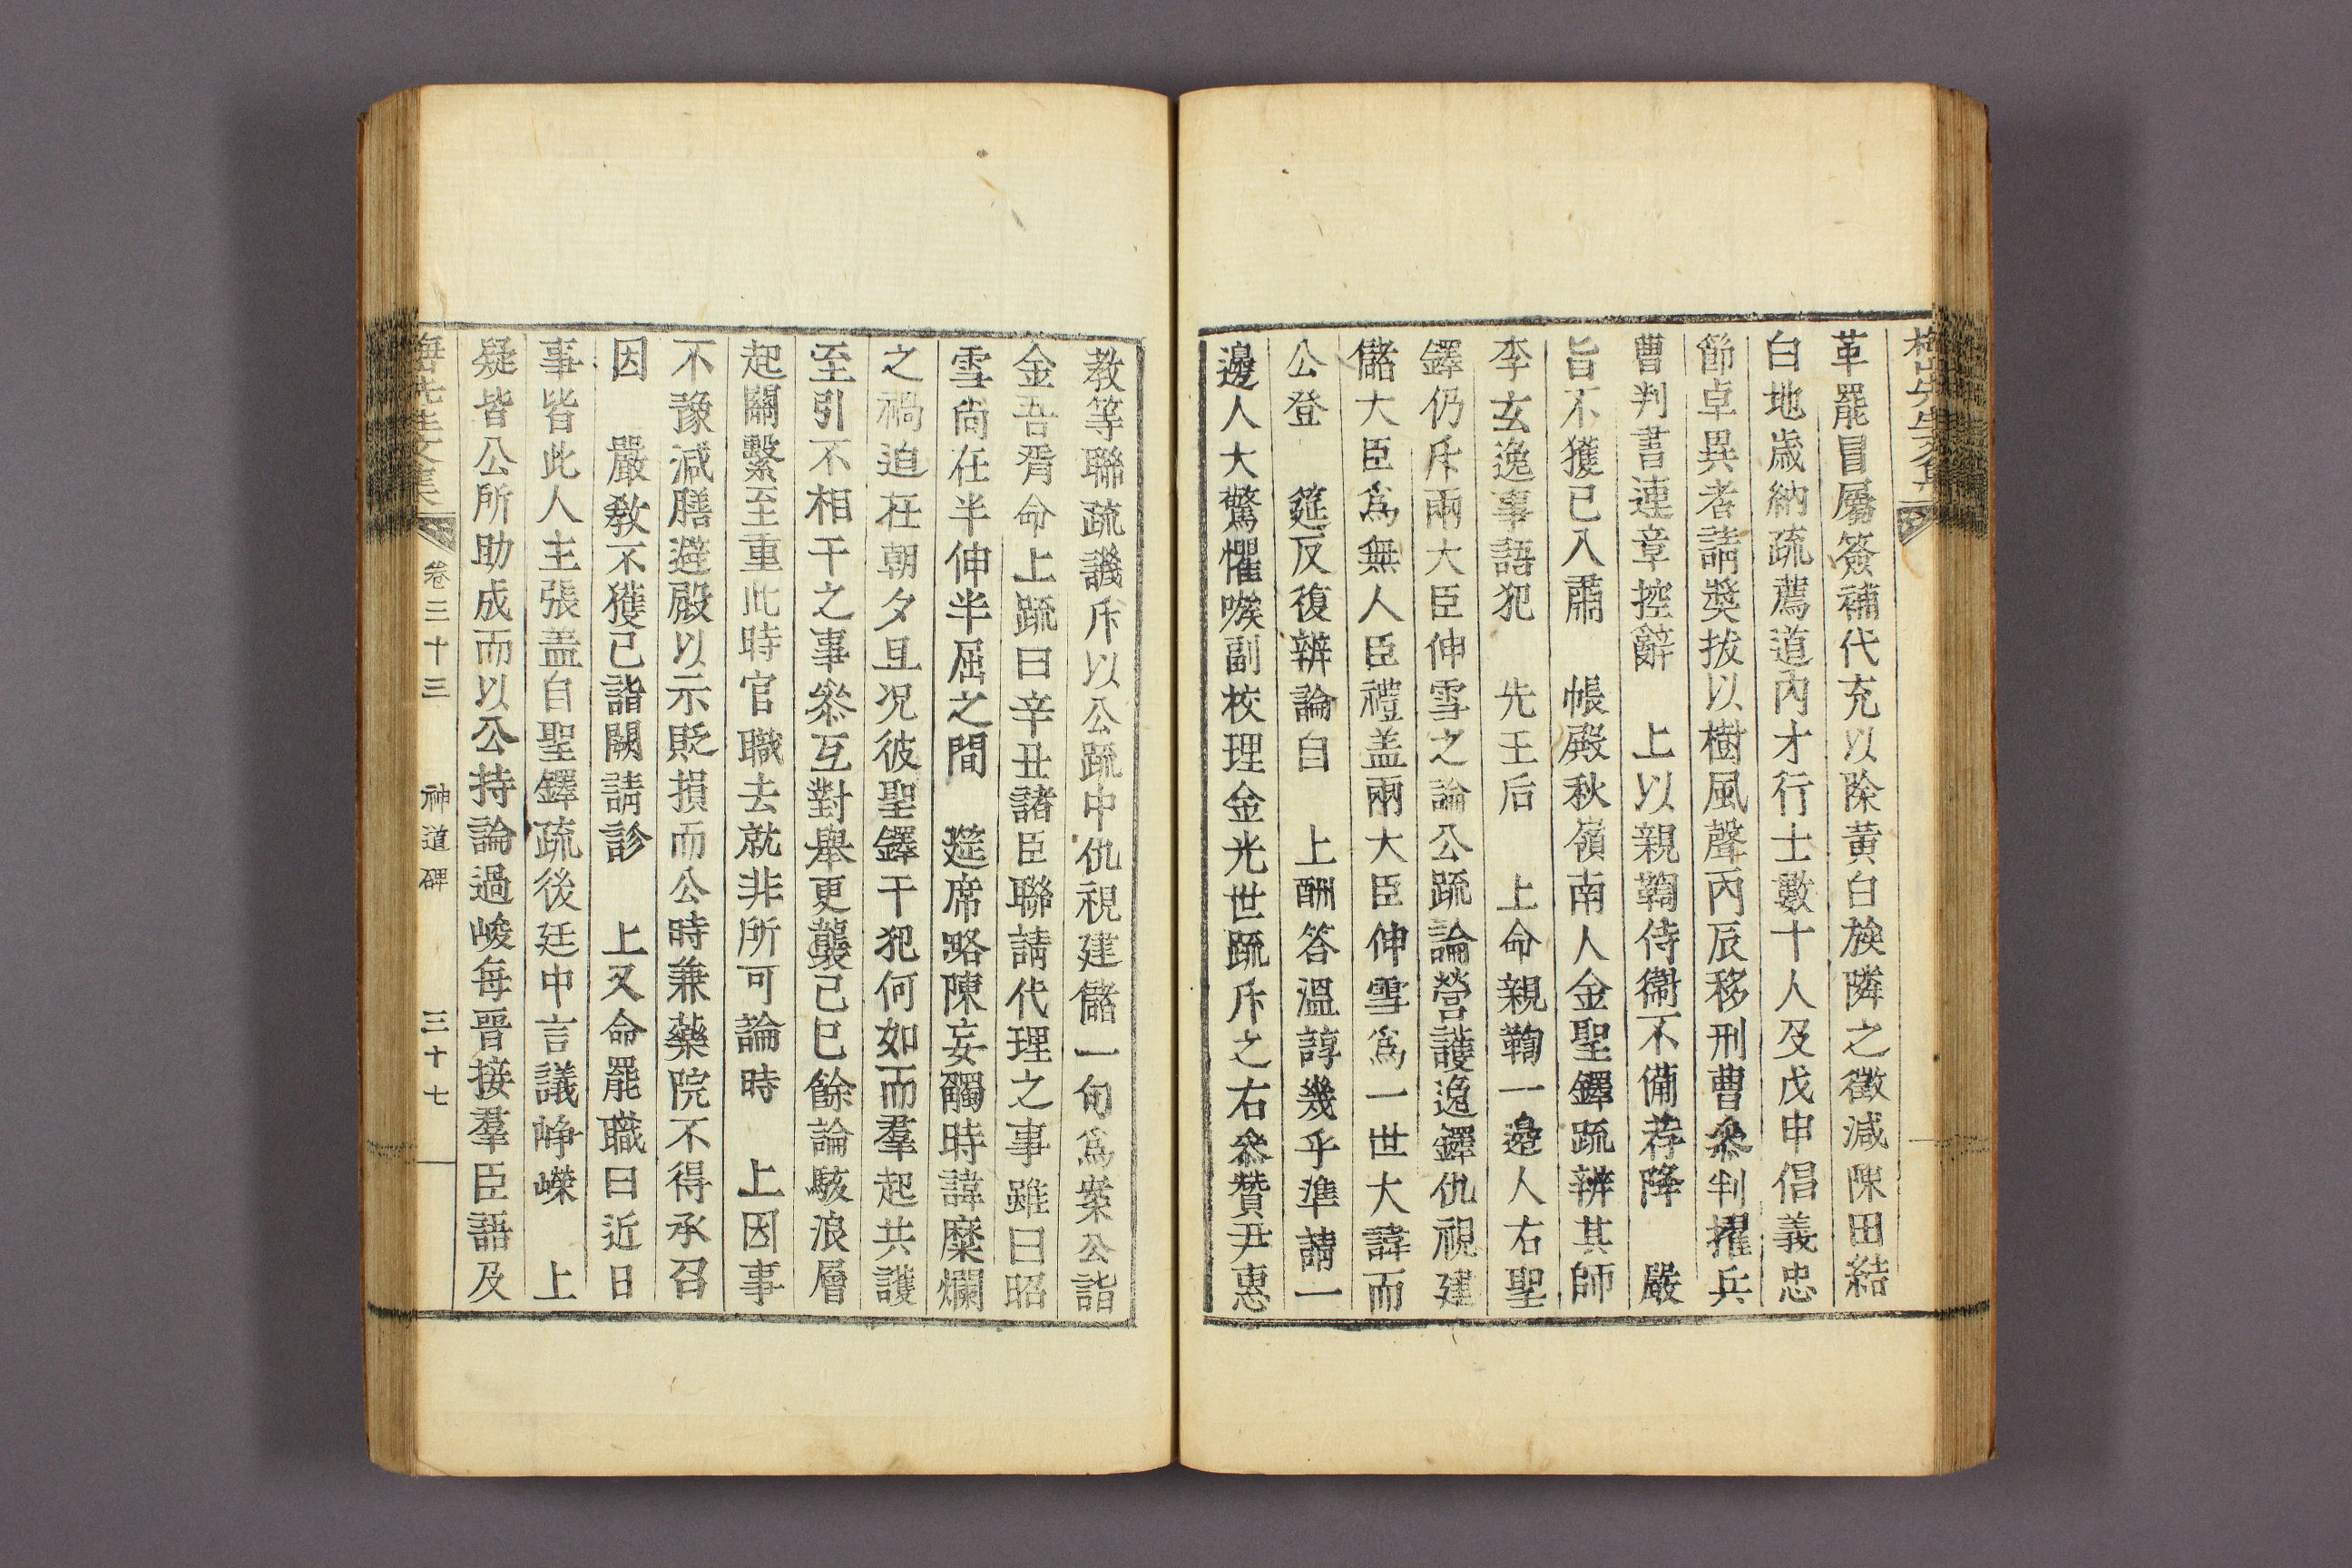 革罷冒屬簽補代充以除黃白族隣之徵減陳田結
白地歲納疏薦道內才行士數十人及戊申倡義忠
節卓異者請奬拔以樹風聲丙辰移刑曹叅判擢兵
曹判書連章控辭 上以親鞫侍衛不備荐降 嚴
旨不獲已入肅 帳殿秋嶺南人金聖鐸疏辨其師
李玄逸事語犯 先王后 上命親鞫一邊人右聖
鐸仍斥兩大臣伸雪之論公疏論營護逸鐸仇視建
儲大臣爲無人臣禮盖兩大臣伸雪爲一世大諱而
公登 筵反復辨論自 上酬答溫諄幾乎準請一
邊人大驚懼嗾副校理金光世疏斥之右叅贊尹惠
教等聯疏譏斥以公疏中仇視建儲一句爲案公詣
金吾胥命上疏曰辛丑諸臣聯請代理之事雖曰昭
雪尙在半伸半屈之間 筵席略陳妄觸時諱糜爛
之禍迫在朝夕且况彼聖鐸干犯何如而羣起共護
至引不相干之事叅互對擧更襲己巳餘論駭浪層
起關繫至重此時官職去就非所可論時 上因事
不豫減膳避殿以示貶損而公時兼藥院不得承召
因 嚴敎不獲已詣闕請診 上又命罷職曰近日
事皆此人主張盖自聖鐸疏後廷中言議崢嶸 上
疑皆公所助成而以公持論過峻每晉接羣臣語及
卷三十三 神道碑 三十七